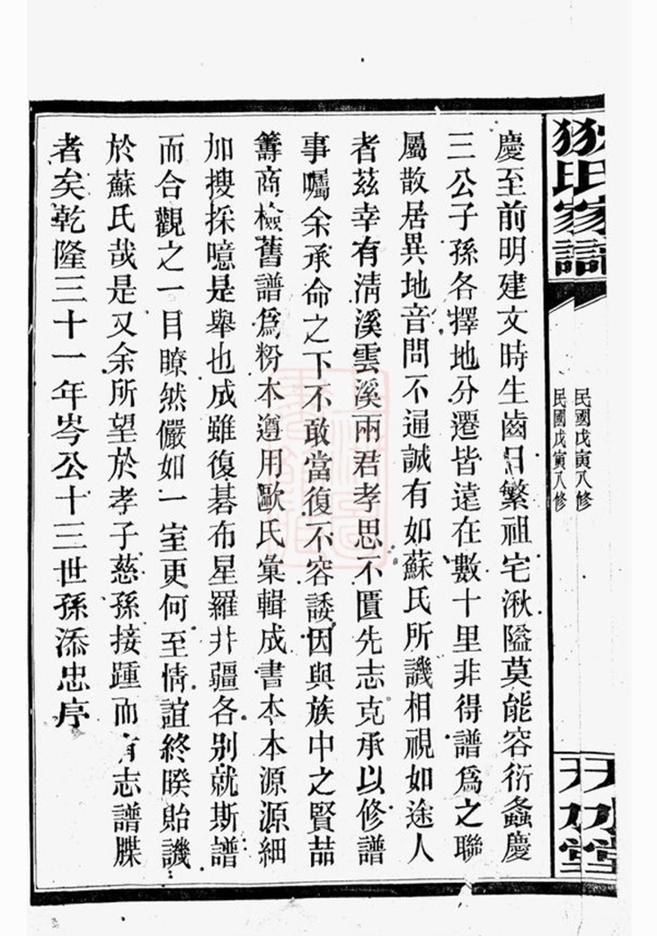 狄氏家譜
民國戊寅八修
民國戊寅八修
慶至前明建文時生齒日繁祖宅湫隘莫能容衍螽慶
三公子孫各擇地分遷皆遠在數十里非得譜為之聯
屬散居異地音問不通誠有如蘇氏所譏相視如途人
者茲幸有清溪雲溪兩君孝思不匱先志克承以修譜
事囑余承命之下不敢當復不容諉因與族中之賢喆
籌商檢舊譜為粉本遵用歐氏彙輯成書本本源源細
加搜採噫是舉也成雖復碁布星羅井疆各別就斯譜
而合觀之一目瞭然儼如一室更何至情誼終暌貽譏
於蘇氏哉是又余所望於孝子慈孫接踵而有志譜牒
者矣乾隆三十一年岑公十三世孫添忠序